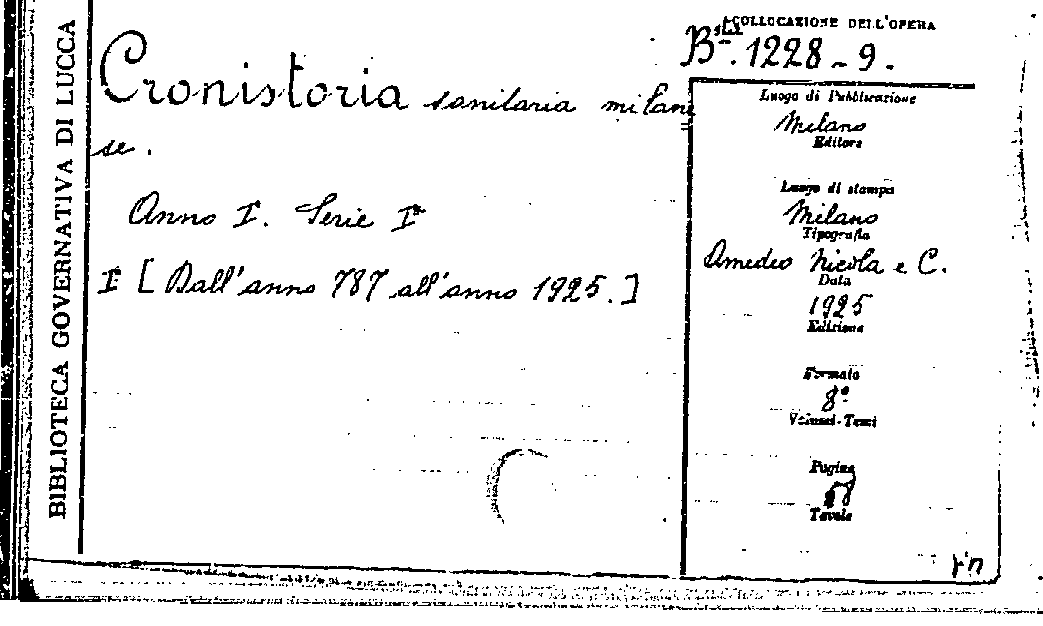 BIBLIOTECA GOVERNATIVA DI LUCCA
COLLOCAZIONE DELL'OPERA
Bta. 1228-9.
Cronistoria sanitaria milane
se.
Anno I. Serie Iª
I [Dall'anno 787 all'anno 1925.]
Luogo di Pubblicazione
Milano
Editore
Luogo di stampa
Milano
Tipografia
Amedeo Nicola e C.
Data
1925
Edizione
Formato
8º
Volumi-Tomi
Pagine
Tavole